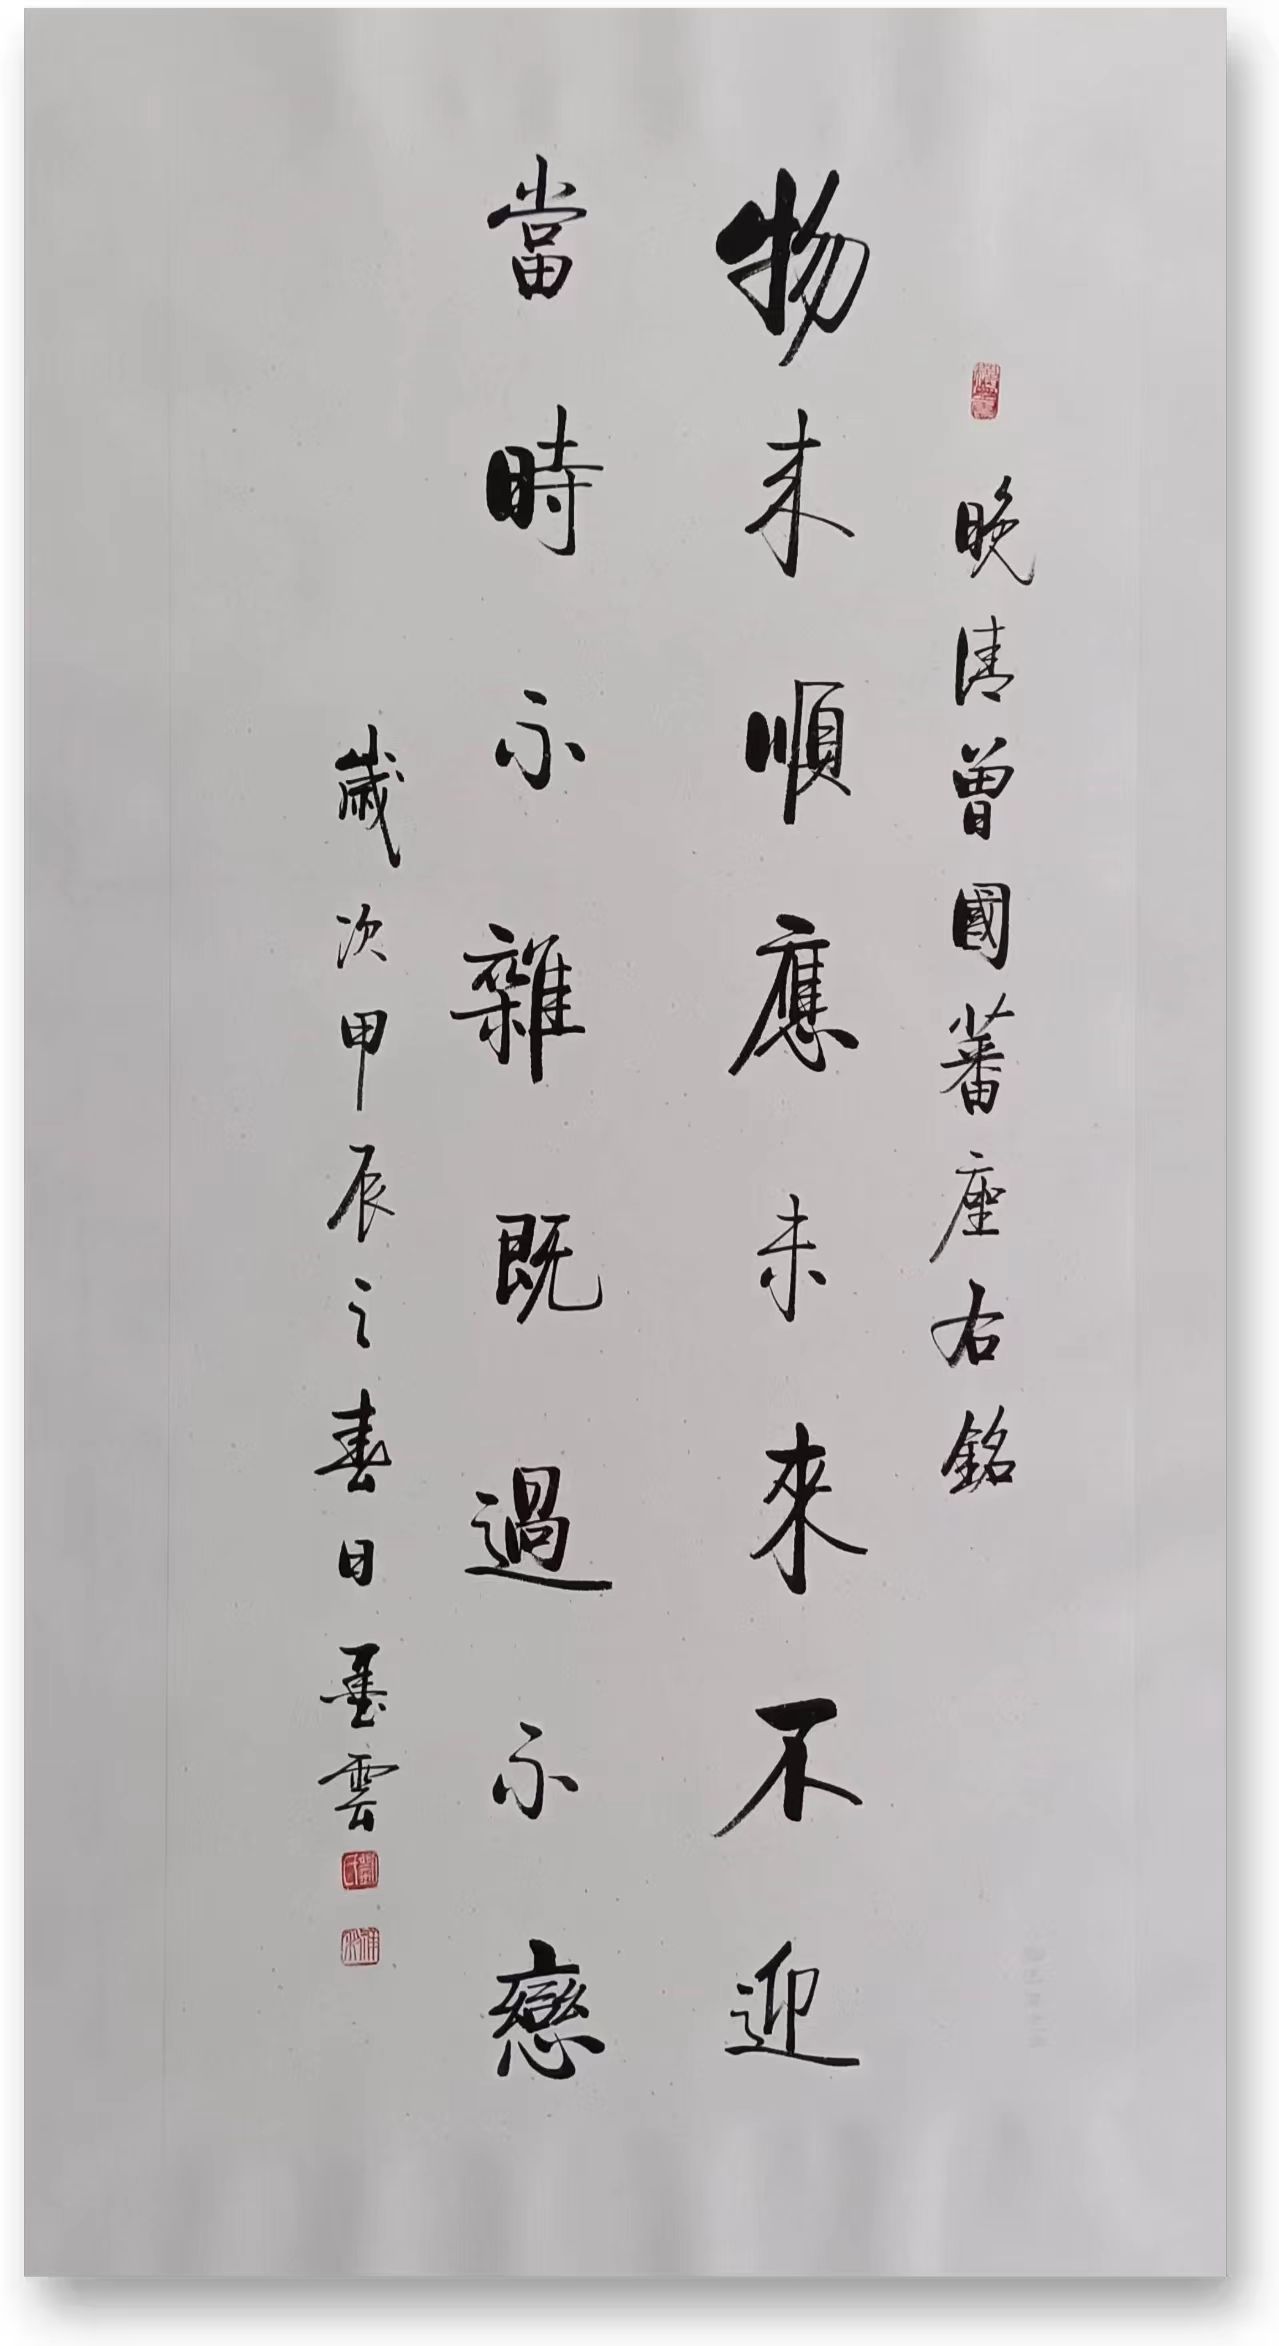 晚清曾國蕃座右銘
物来順應未來不迎
當時不雜既過不戀
歲次甲辰之春日墨雲